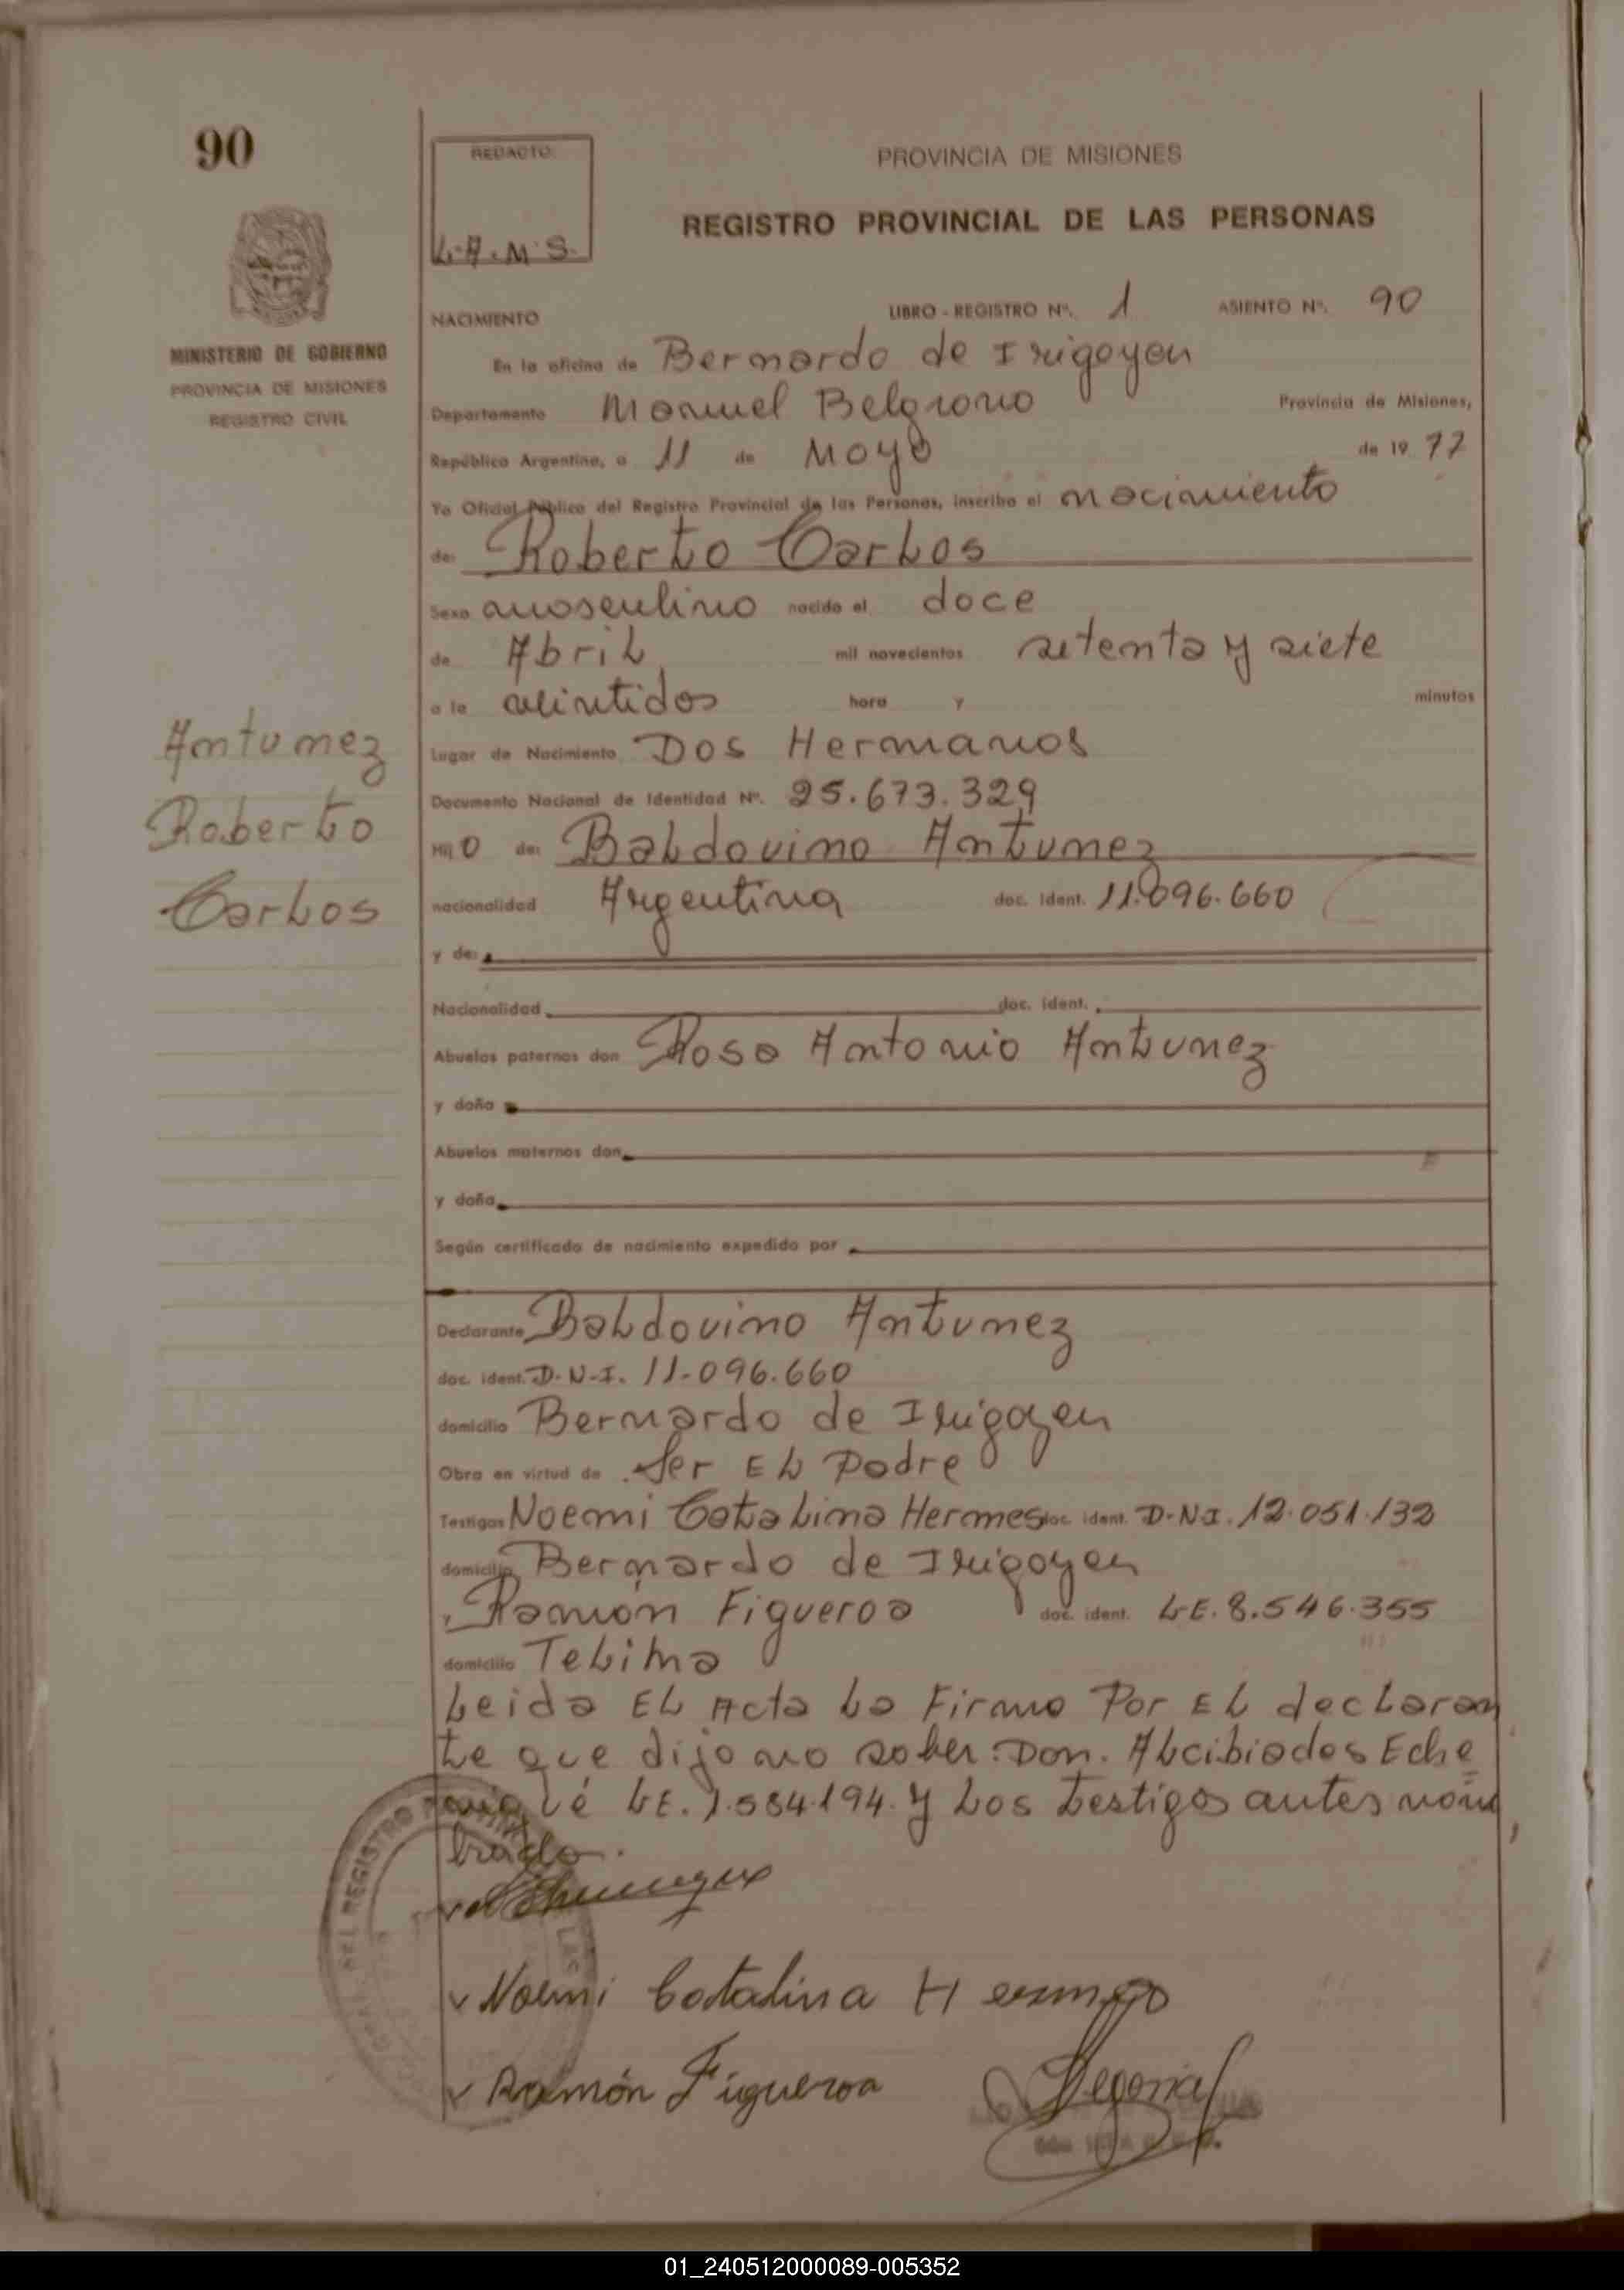 90
REDACTO:
L.A.M.S.
PROVINCIA DE MISIONES
REGISTRO PROVINCIAL DE LAS PERSONAS
MINISTERIO DE GOBIERNO
PROVINCIA DE MISIONES
REGISTRO CIVIL
NACIMIENTO LIBRO - REGISTRO Nº. 1 ASIENTO Nº. 90
En la oficina de Bernardo de Irigoyen
Departamento Manuel Belgrano Provincia de Misiones,
República Argentina, a 11 de Mayo de 19 77
Yo Oficial Público del Registro Provincial de las Personas, inscribo el nacimiento
de: Roberto Carlos
Sexo masculino nacido el doce
de Abril mil novecientos setenta y siete
a la veintidos hora y minutos
Lugar de Nacimiento Dos Hermanos
Documento Nacional de Identidad Nº. 25.673.329
Antunez
Roberto
Carlos
Hijo de: Baldovino Antunez
nacionalidad Argentina doc. ident. 11.096.660
y de:
Nacionalidad doc. ident.
Abuelos paternos don Rosa Antonio Antunez
y doña
Abuelos maternos don
y doña
Según certificado de nacimiento expedido por
Declarante Baldovino Antunez
doc. ident. D.N.I. 11.096.660
domicilio Bernardo de Irigoyen
Obra en virtud de Ser El Padre
Testigos Noemi Catalina Hermes doc. ident. D.N.I. 12.051.132
domicilio Bernardo de Irigoyen
Ramón Figueroa doc. ident. L.E. 8.546.355
domicilio
Leida El Acta La Firma Por El declaran
te que dijo no saber: Don. Alcibiades Eche
LE. 1.584.194. y Los testigos antes nom
brado.
Noemi Catalina Hermes
Ramón Figueroa
DEL REGISTRO
LAS
01_240512000089-005352